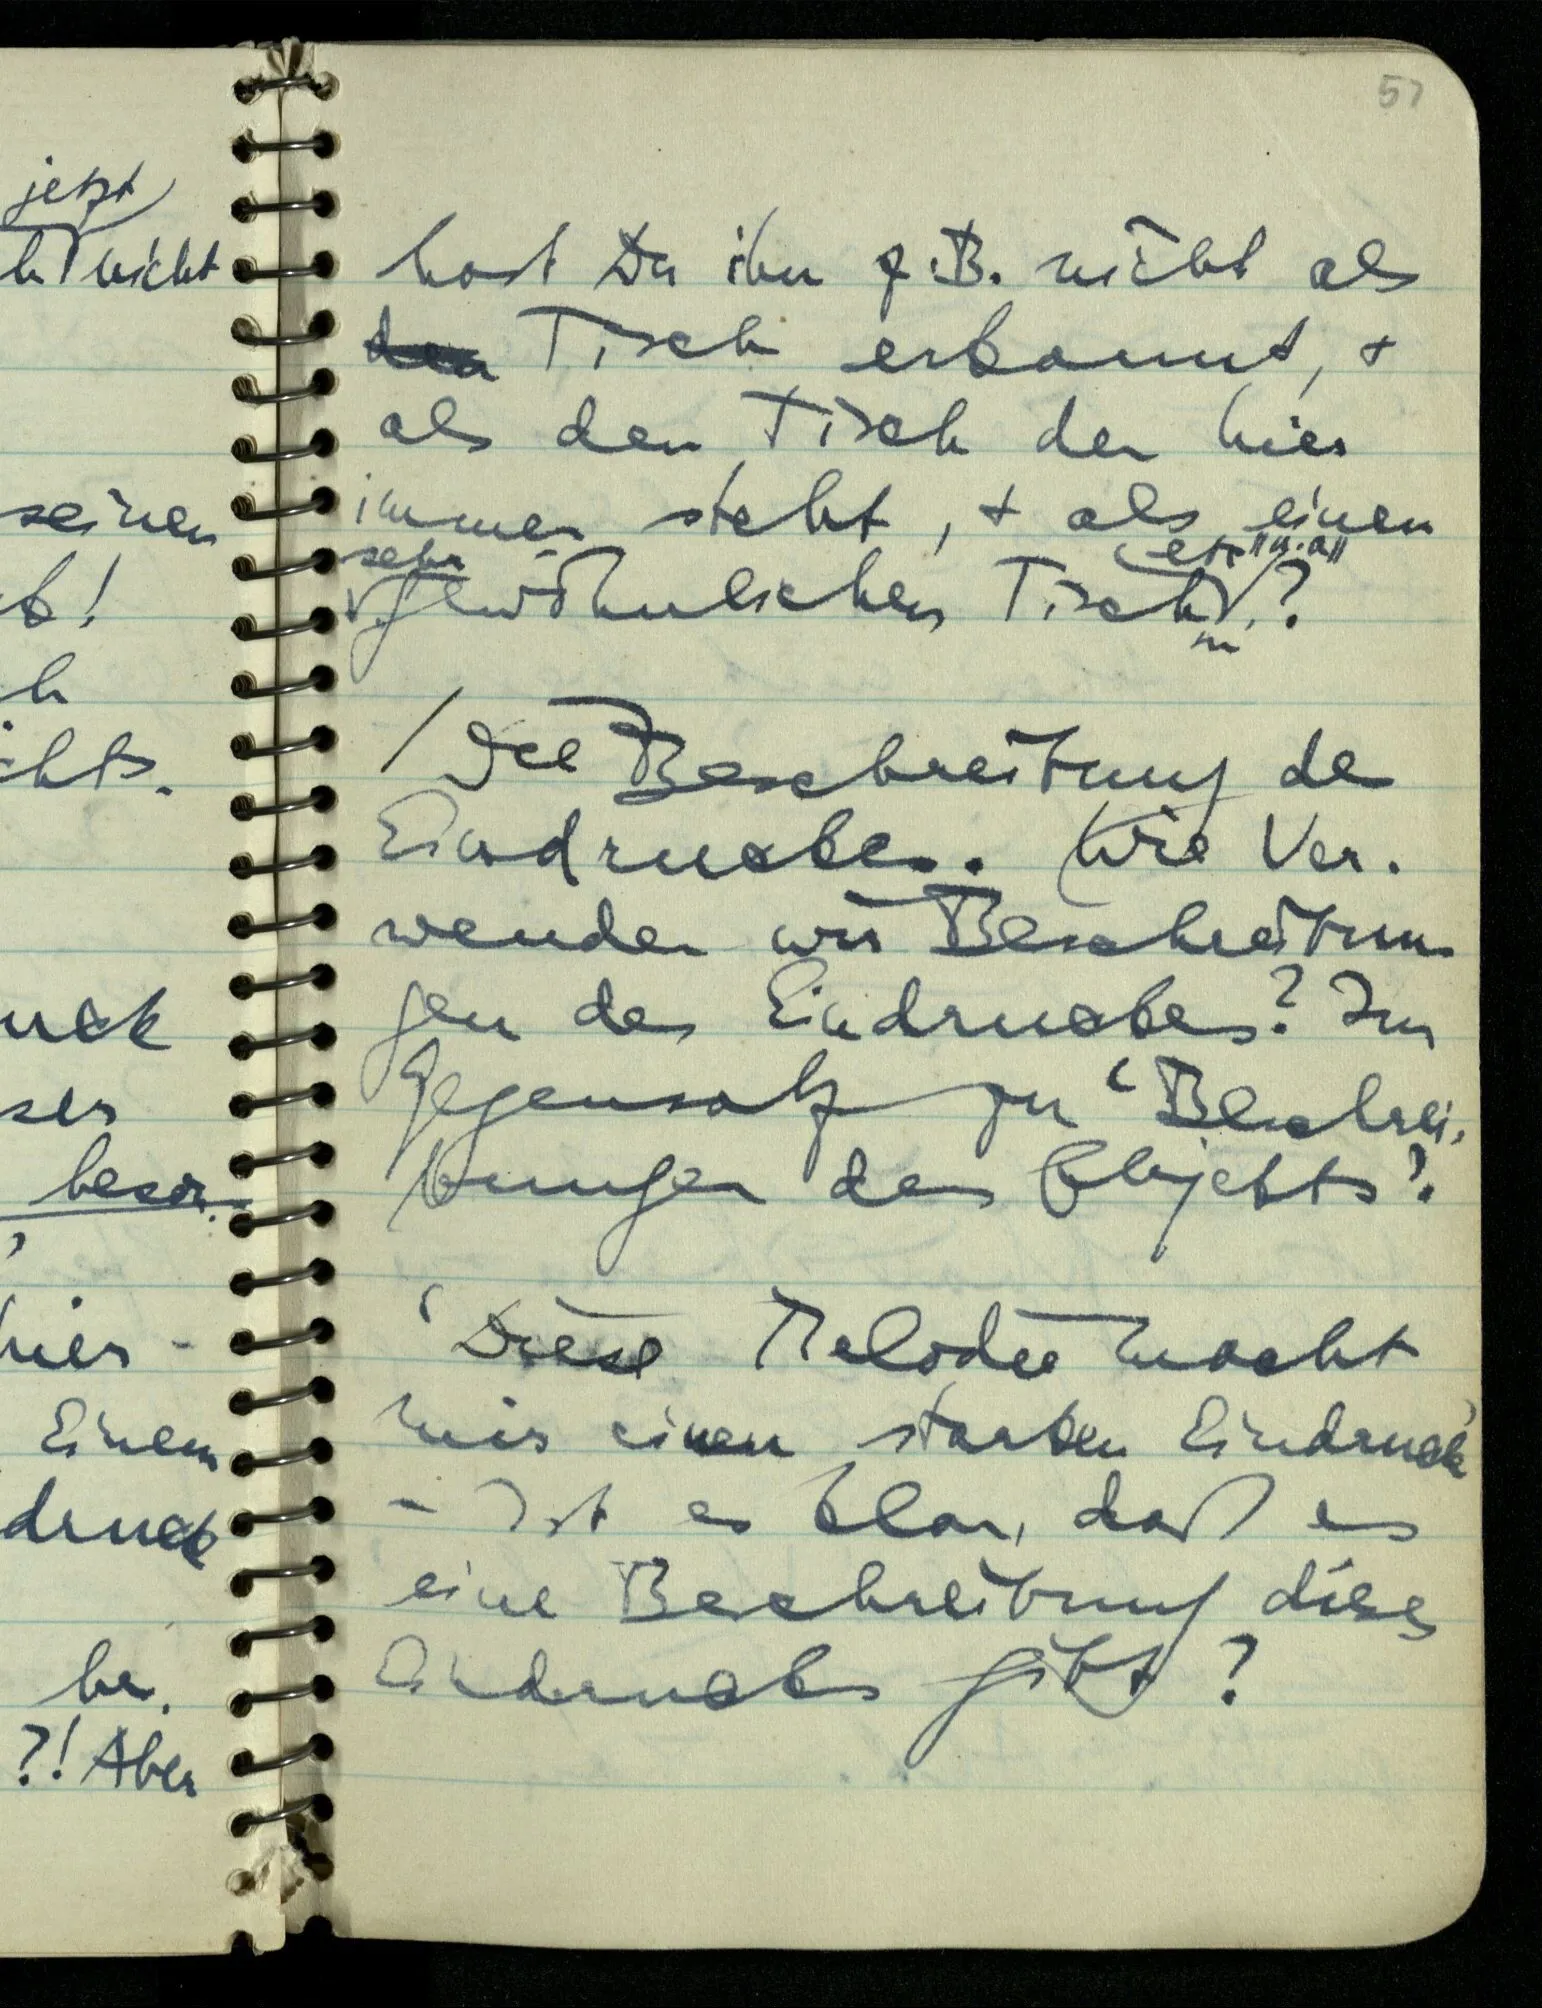 57
jetzt
nicht
seinen
!
h
chts.
uck
ser
beson
,
hier -
Einem
druck
be.
?! Aber
hast Du ihn z.B. nicht als
den Tisch erkannt, +
als den Tisch der hier
immer steht, + als einen
sehr gewöhnlichen Tisch etc "u.a" ?
/ Die Beschreibung des
Eindruckes. Wie Ver-
wenden wir Beschreibun
gen des Eindruckes? Im
Gegensatz zu 'Beschrei-
bungen des Objekts'?
'Diese Melodie macht
mir einen starken Eindruck'
- Ist es klar, daß es
eine Beschreibung dieses
Eindrucks gibt?